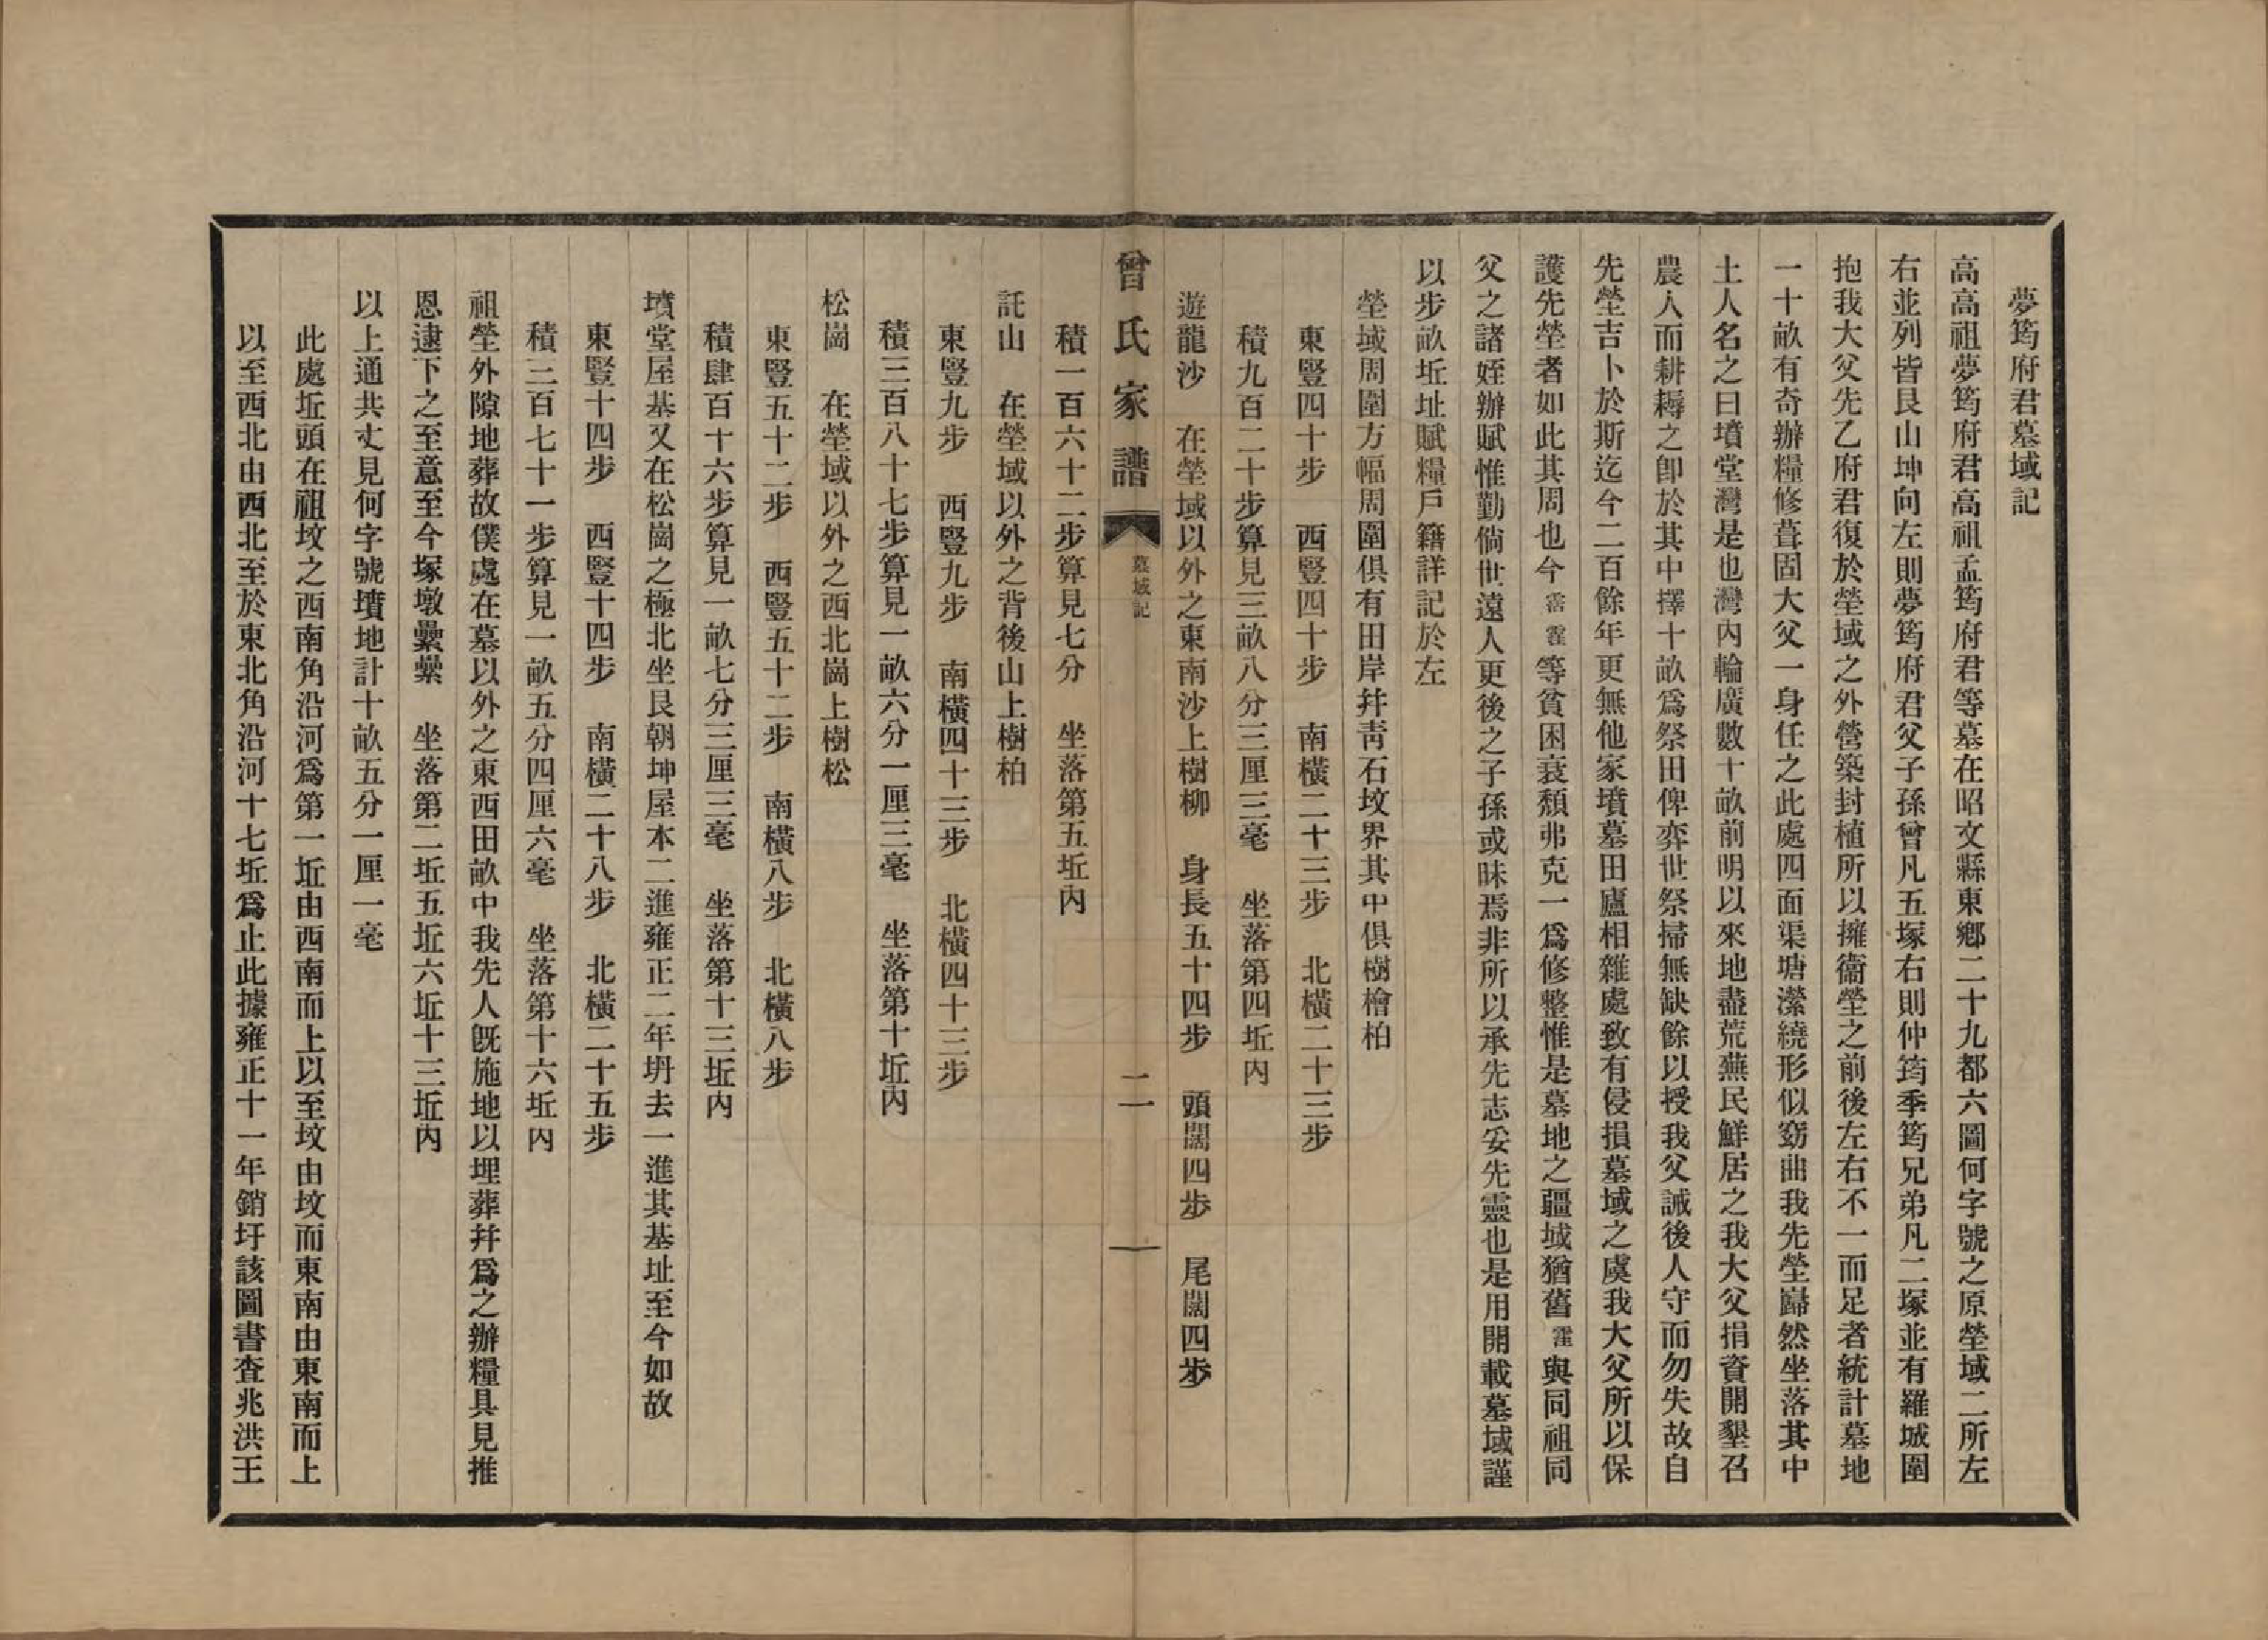 夢筠府君墓域記
高高祖夢筠府君高祖孟筠府君等墓在昭文縣東鄉二十九都六圖何字號之原塋域二所左
右並列皆艮山坤向左則夢筠府君父子孫曾凡五塚右則仲筠季筠兄弟凡二塚並有羅城圍
抱我大父先乙府君復於塋域之外營築封植所以擁衞塋之前後左右不一而足者統計墓地
一十畝有奇辦糧修葺固大父一身任之此處四面渠塘瀠繞形似窈曲我先塋巋然坐落其中
土人名之曰墳堂灣是也灣內輪廣數十畝前明以來地盡荒蕪民鮮居之我大父捐資開墾召
農人而耕耨之卽於其中擇十畝爲祭田俾弈世祭掃無缺餘以授我父誡後人守而勿失故自
先塋吉卜於斯迄今二百餘年更無他家墳墓田廬相雜處致有侵損墓域之虞我大父所以保
護先塋者如此其周也今霱霳等貧困衰頹弗克一爲修整惟是墓地之疆域猶舊霳與同祖同
父之諸姪辦賦惟勤倘世遠人更後之子孫或昧焉非所以承先志妥先靈也是用開載墓域謹
以步畝坵址賦糧戶籍詳記於左
塋域周圍方幅周圍俱有田岸幷靑石坟界其中俱樹檜柏
東豎四十步　西豎四十步　南橫二十三步　北橫二十三步
積九百二十步算見三畝八分三厘三毫　坐落第四坵內
遊龍沙　在塋域以外之東南沙上樹柳　身長五十四步　頭闊四步　尾闊四步
曾氏家譜　墓域記　二
積一百六十二步算見七分　坐落第五坵內
託山　在塋域以外之背後山上樹柏
東豎九步　西豎九步　南橫四十三步　北橫四十三步
積三百八十七步算見一畝六分一厘三毫　坐落第十坵內
松崗　在塋域以外之西北崗上樹松
東豎五十二步　西豎五十二步　南橫八步　北橫八步
積肆百十六步算見一畝七分三厘三毫　坐落第十三坵內
墳堂屋基又在松崗之極北坐艮朝坤屋本二進雍正二年坍去一進其基址至今如故
東豎十四步　西豎十四步　南橫二十八步　北橫二十五步
積三百七十一步算見一畝五分四厘六毫　坐落第十六坵內
祖塋外隙地葬故僕處在墓以外之東西田畝中我先人旣施地以埋葬幷爲之辦糧具見推
恩逮下之至意至今塚墩纍纍　坐落第二坵五坵六坵十三坵內
以上通共丈見何字號墳地計十畝五分一厘一毫
此處坵頭在祖坟之西南角沿河爲第一坵由西南而上以至坟由坟而東南由東南而上
以至西北由西北至於東北角沿河十七坵爲止此據雍正十一年銷圩該圖書査兆洪王